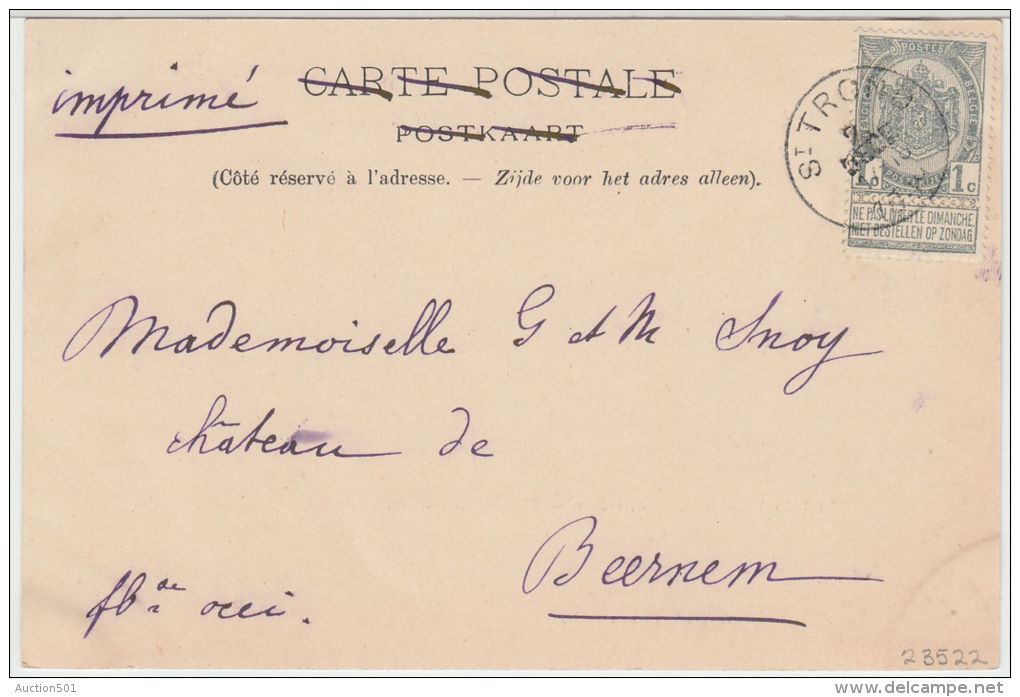 imprimé
CARTE POSTALE
POSTKAART
(Côté réservé à l'adresse. — Zijde voor het adres alleen).
POSTES
BELGIQUE BELGIE
1 c 1 c
NE PAS LIVRER LE DIMANCHE
NIET BESTELLEN OP ZONDAG
ST TROND
Mademoiselle G et M Snoy
château de
Beernem
fl.b
occi.
23522
Auction501
delcampe.net